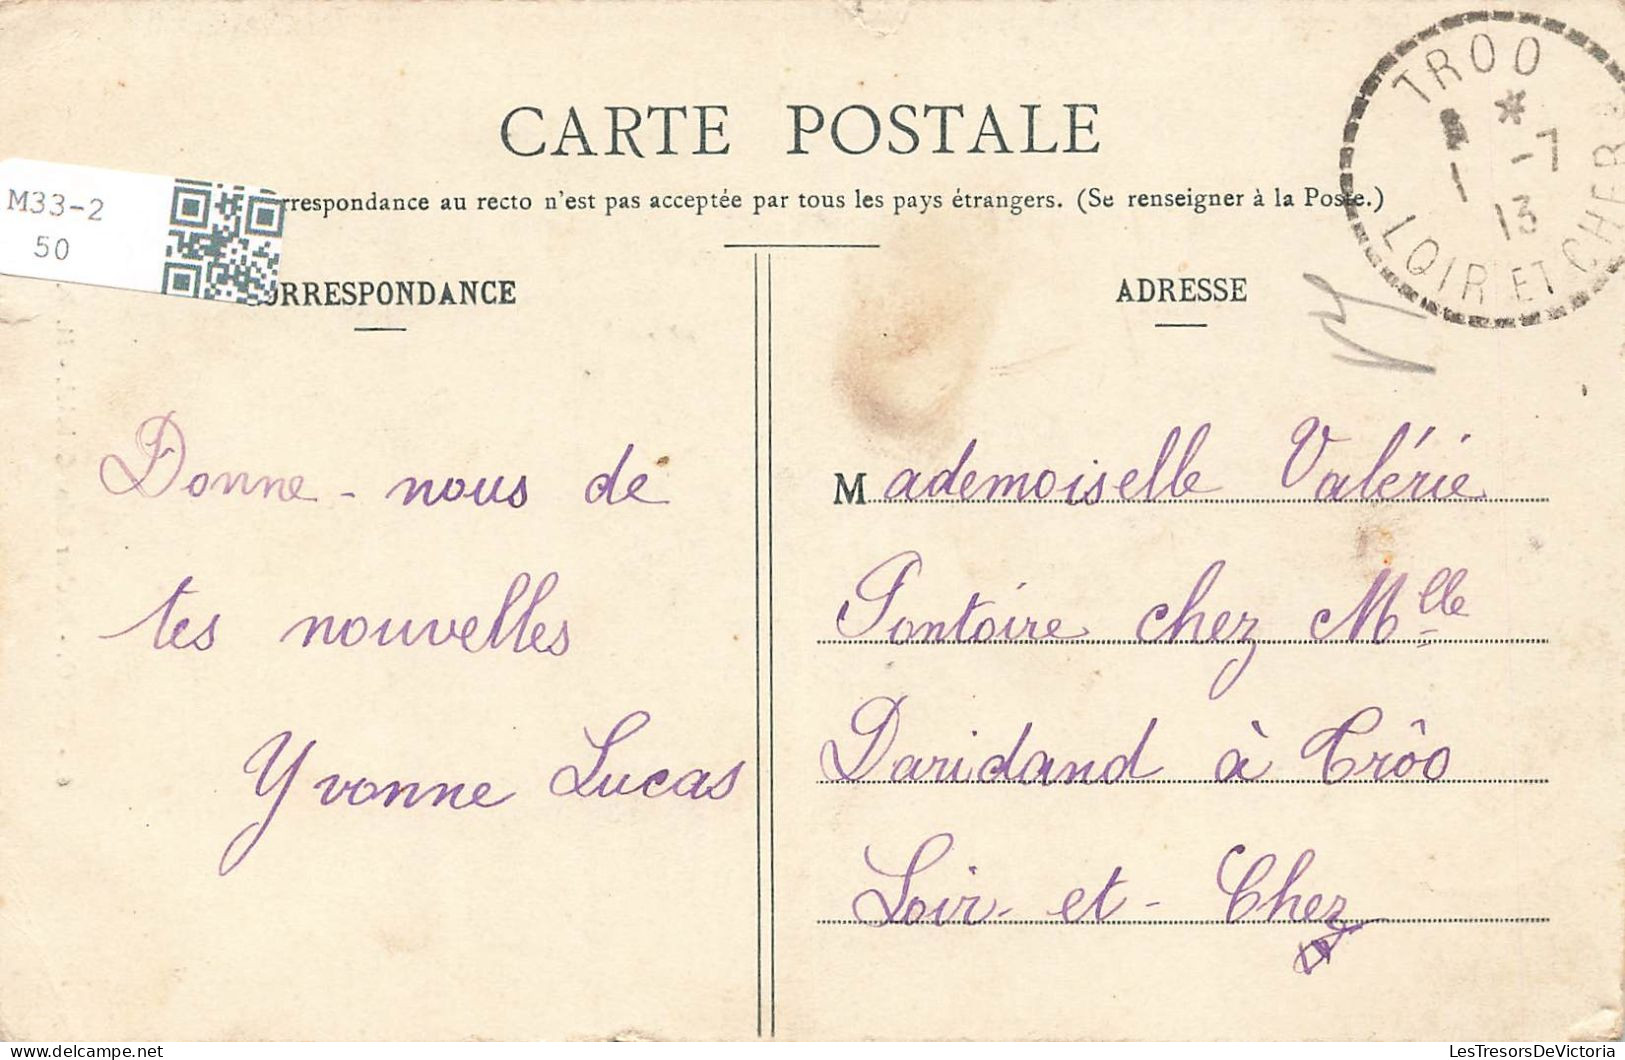 CARTE POSTALE
M33-2
50
rrespondance au recto n'est pas acceptée par tous les pays étrangers. (Se renseigner à la Poste.)
TROO
* 1 -7
13
LOIR ET CHER
ORRESPONDANCE
ADRESSE
Donne-nous de
tes nouvelles
Yvonne Lucas
Mademoiselle Valérie
Pontoire chez Mlle
Daridand à Trôo
Loir-et-Cher
LesTresorsDeVictoria